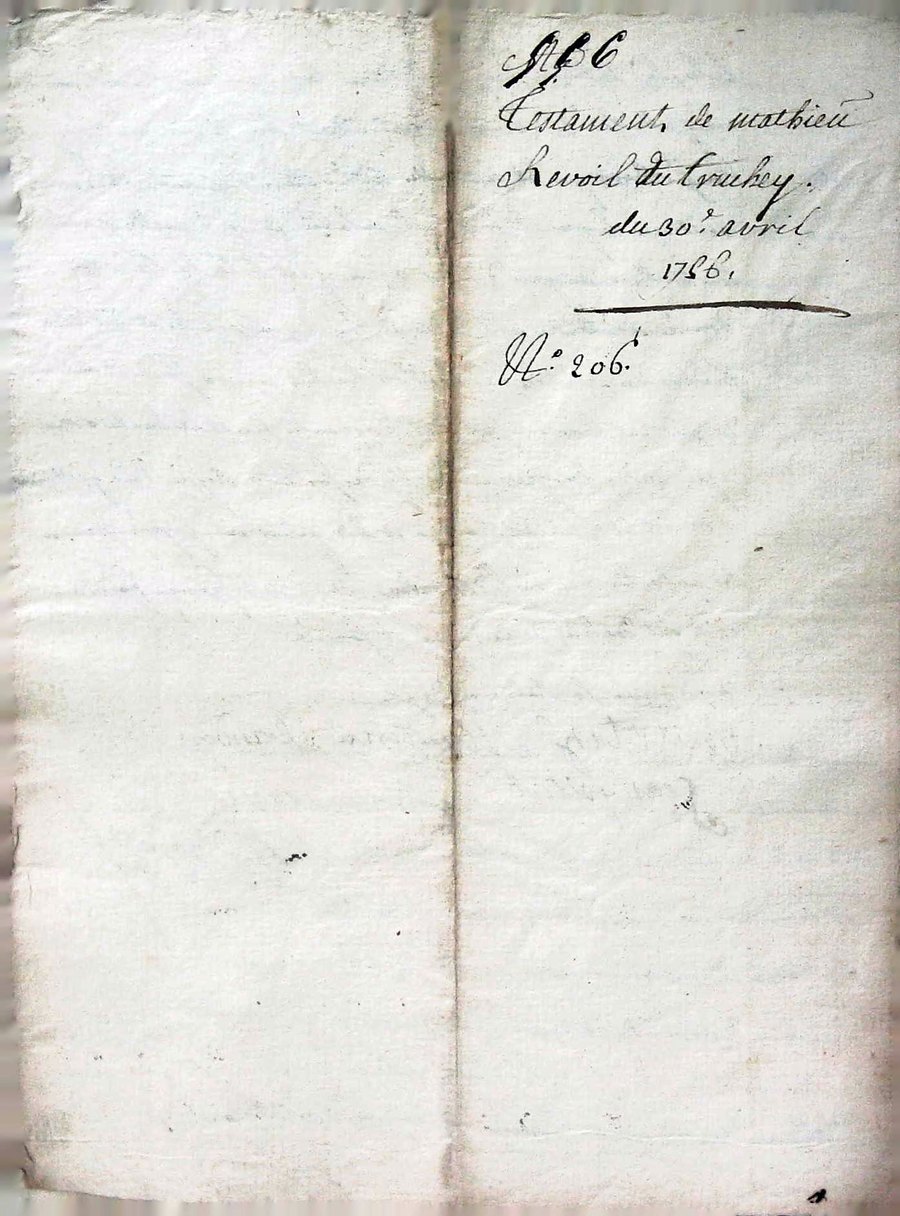 Testament de mathieu
Revoil du truchey.
du 30.e avril
1756.
N.o 206.